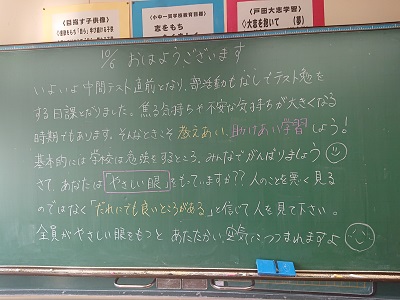 <目指す子供像>
<小中一貫学校教育目標>
志をもち
<戸田大志学習>
◇大志を抱いて (夢)
10/6 おはようございます
いよいよ中間テスト直前となり、部活動もなしでテスト勉を
する日課となりました。焦る気持ちや不安な気持ちが大きくなる
時期でもあります。そんなときこそ 教えあい、助けあい学習しよう!
基本的には学校は勉強をするところ。みんなでがんばりましょう
さて、あなたは「やさしい眼」をもっていますか?? 人のことを悪く見る
のではなく「だれにでも良いところがある」と信じて人を見て下さい。
全員がやさしい眼をもつと あたたかい 空気につつまれますよ